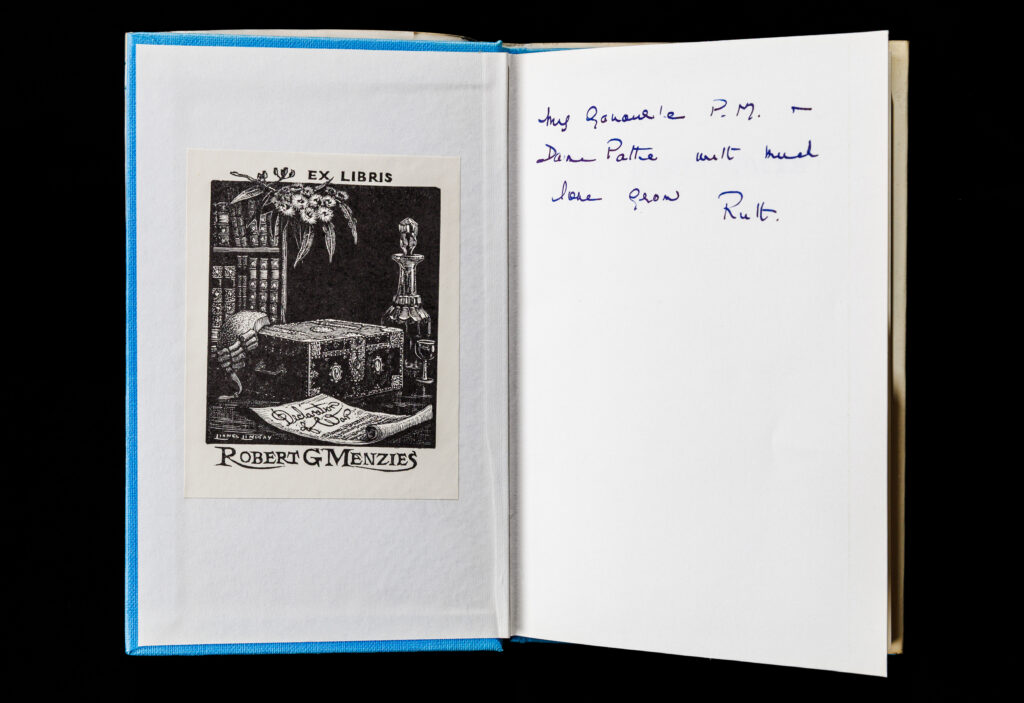 EX LIBRIS
Declaration of War
LIONEL LINDSAY
ROBERT G MENZIES
My favourite P.M. +
Dame Pattie with much
love from Ruth.